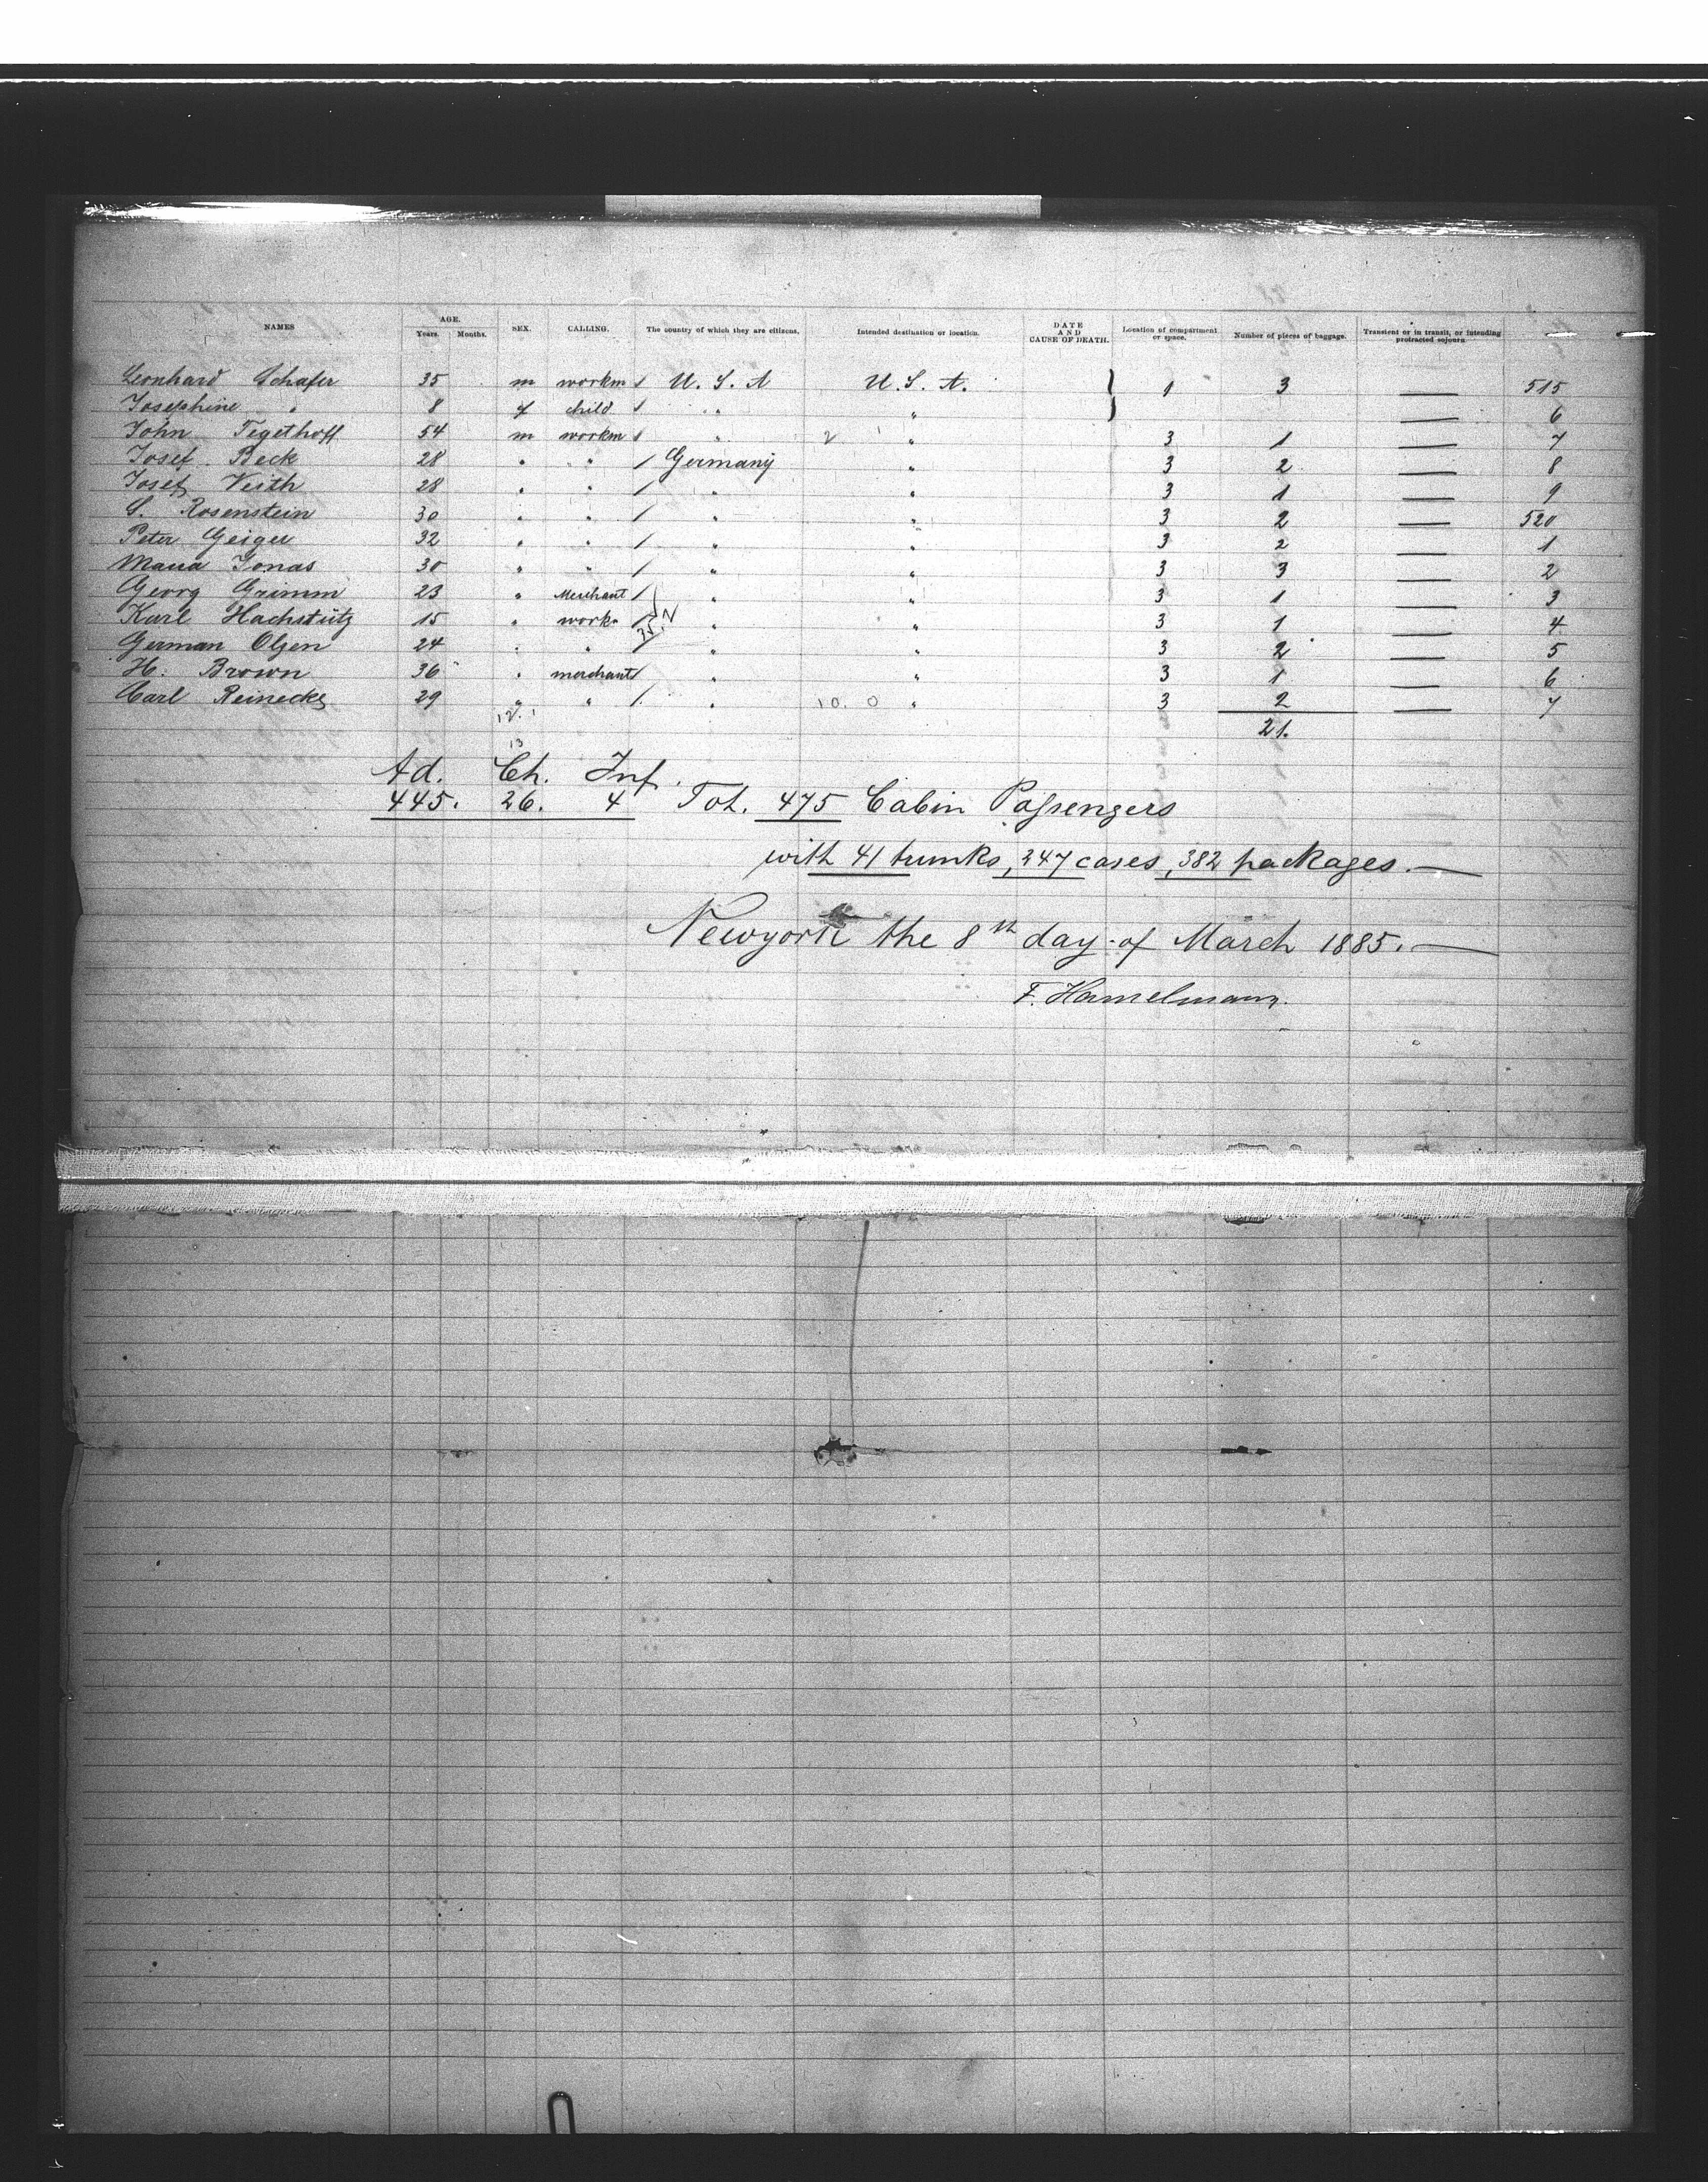 NAMES AGE. Years. Months. SEX. CALLING. The country of which they are citizens. Intended destination or location. DATE AND CAUSE OF DEATH. Location of compartment or space. Number of pieces of baggage. Transient or in transit, or intending protracted sojourn.
Leonhard Schafer 35 m workm / U. S. A U. S. A. } 1 3 — 515
Josephine " 8 f child / " " — 6
John Tegethoff 54 m workm / " 2 " 3 1 — 7
Josef Beck 28 " " / Germany " 3 2 — 8
Josef Veith 28 " " / " " 3 1 — 9
S. Rosenstein 30 " " / " " 3 2 — 520
Peter Geiger 32 " " / " " 3 2 — 1
Maria Jonas 30 " " / " " 3 3 — 2
Georg Grimm 23 " Merchant / " " 3 1 — 3
Karl Hachstütz 15 " work" / " " 3 1 — 4
German Olsen 24 " " / " " 3 2 — 5
H. Brown 36 " merchant / " " 3 1 — 6
Carl Reinecke 29 " " / " 10. 0 " 3 2 — 7
12. 1 21.
13
Ad. Ch. Inf.
445. 26. 4 Tot. 475 Cabin Passengers
with 41 trunks, 247 cases, 382 packages. —
Newyork the 8th day of March 1885. —
F. Hamelmann.